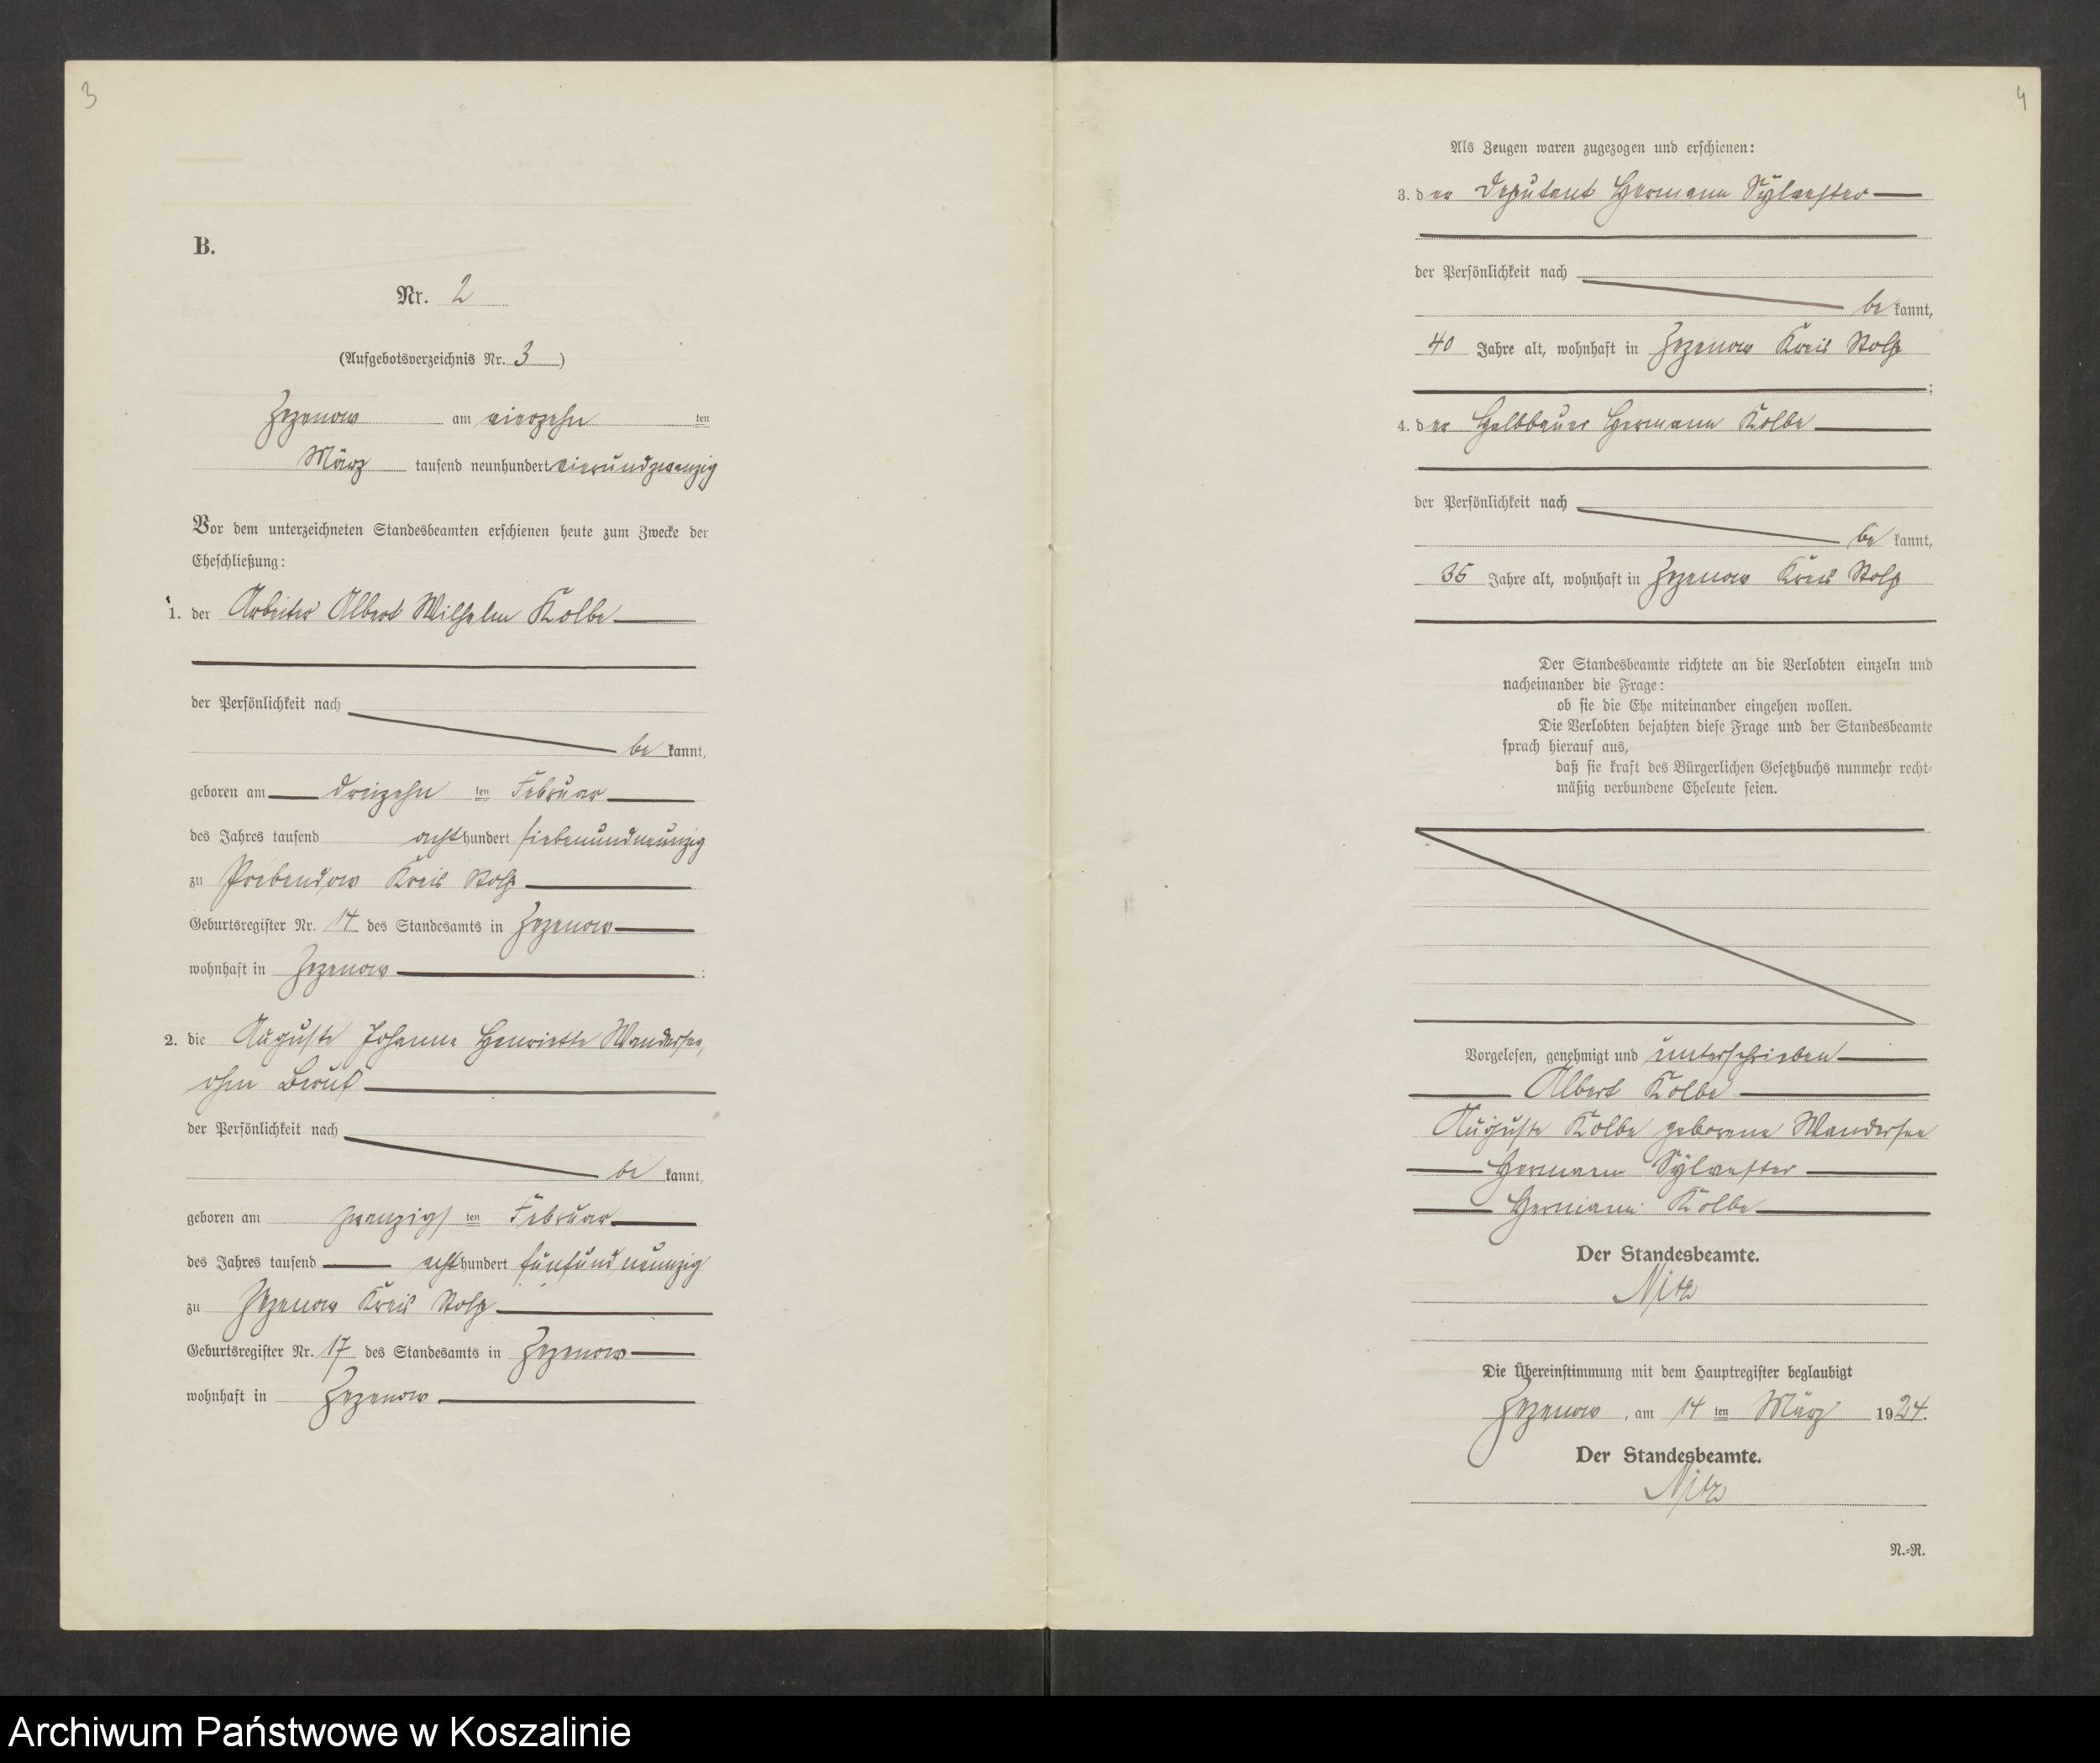 3
B.
Nr. 2
(Aufgebotsverzeichnis Nr. 3)
Zezenow am vierzehn ten
März tausend neunhundert vierundzwanzig
Vor dem unterzeichneten Standesbeamten erschienen heute zum Zwecke der
Eheschließung:
1. der Arbeiter Albert Wilhelm Kolbe
der Persönlichkeit nach
be kannt,
geboren am dreizehn ten Februar
des Jahres tausend acht hundert siebenundneunzig
zu Prebendow Kreis Stolp
Geburtsregister Nr. 14 des Standesamts in Zezenow
wohnhaft in Zezenow ;
2. die Auguste Johanne Henriette Wandersee,
ohne Beruf
der Persönlichkeit nach
be kannt,
geboren am zwanzigs ten Februar
des Jahres tausend acht hundert fünfundneunzig
zu Zezenow Kreis Stolp
Geburtsregister Nr. 17 des Standesamts in Zezenow
wohnhaft in Zezenow
4
Als Zeugen waren zugezogen und erschienen:
3. der Deputant Hermann Sylvester
der Persönlichkeit nach
be kannt,
40 Jahre alt, wohnhaft in Zezenow Kreis Stolp
;
4. der Halbbauer Hermann Kolbe
der Persönlichkeit nach
be kannt,
35 Jahre alt, wohnhaft in Zezenow Kreis Stolp
Der Standesbeamte richtete an die Verlobten einzeln und
nacheinander die Frage:
ob sie die Ehe miteinander eingehen wollen.
Die Verlobten bejahten diese Frage und der Standesbeamte
sprach hierauf aus,
daß sie kraft des Bürgerlichen Gesetzbuchs nunmehr recht-
mäßig verbundene Eheleute seien.
Vorgelesen, genehmigt und unterschrieben
Albert Kolbe
Auguste Kolbe geborene Wandersee
Hermann Sylvester
Hermann Kolbe
Der Standesbeamte.
Nitz
Die Übereinstimmung mit dem Hauptregister beglaubigt
Zezenow, am 14 ten März 1924.
Der Standesbeamte.
Nitz
N.-R.
Archiwum Państwowe w Koszalinie